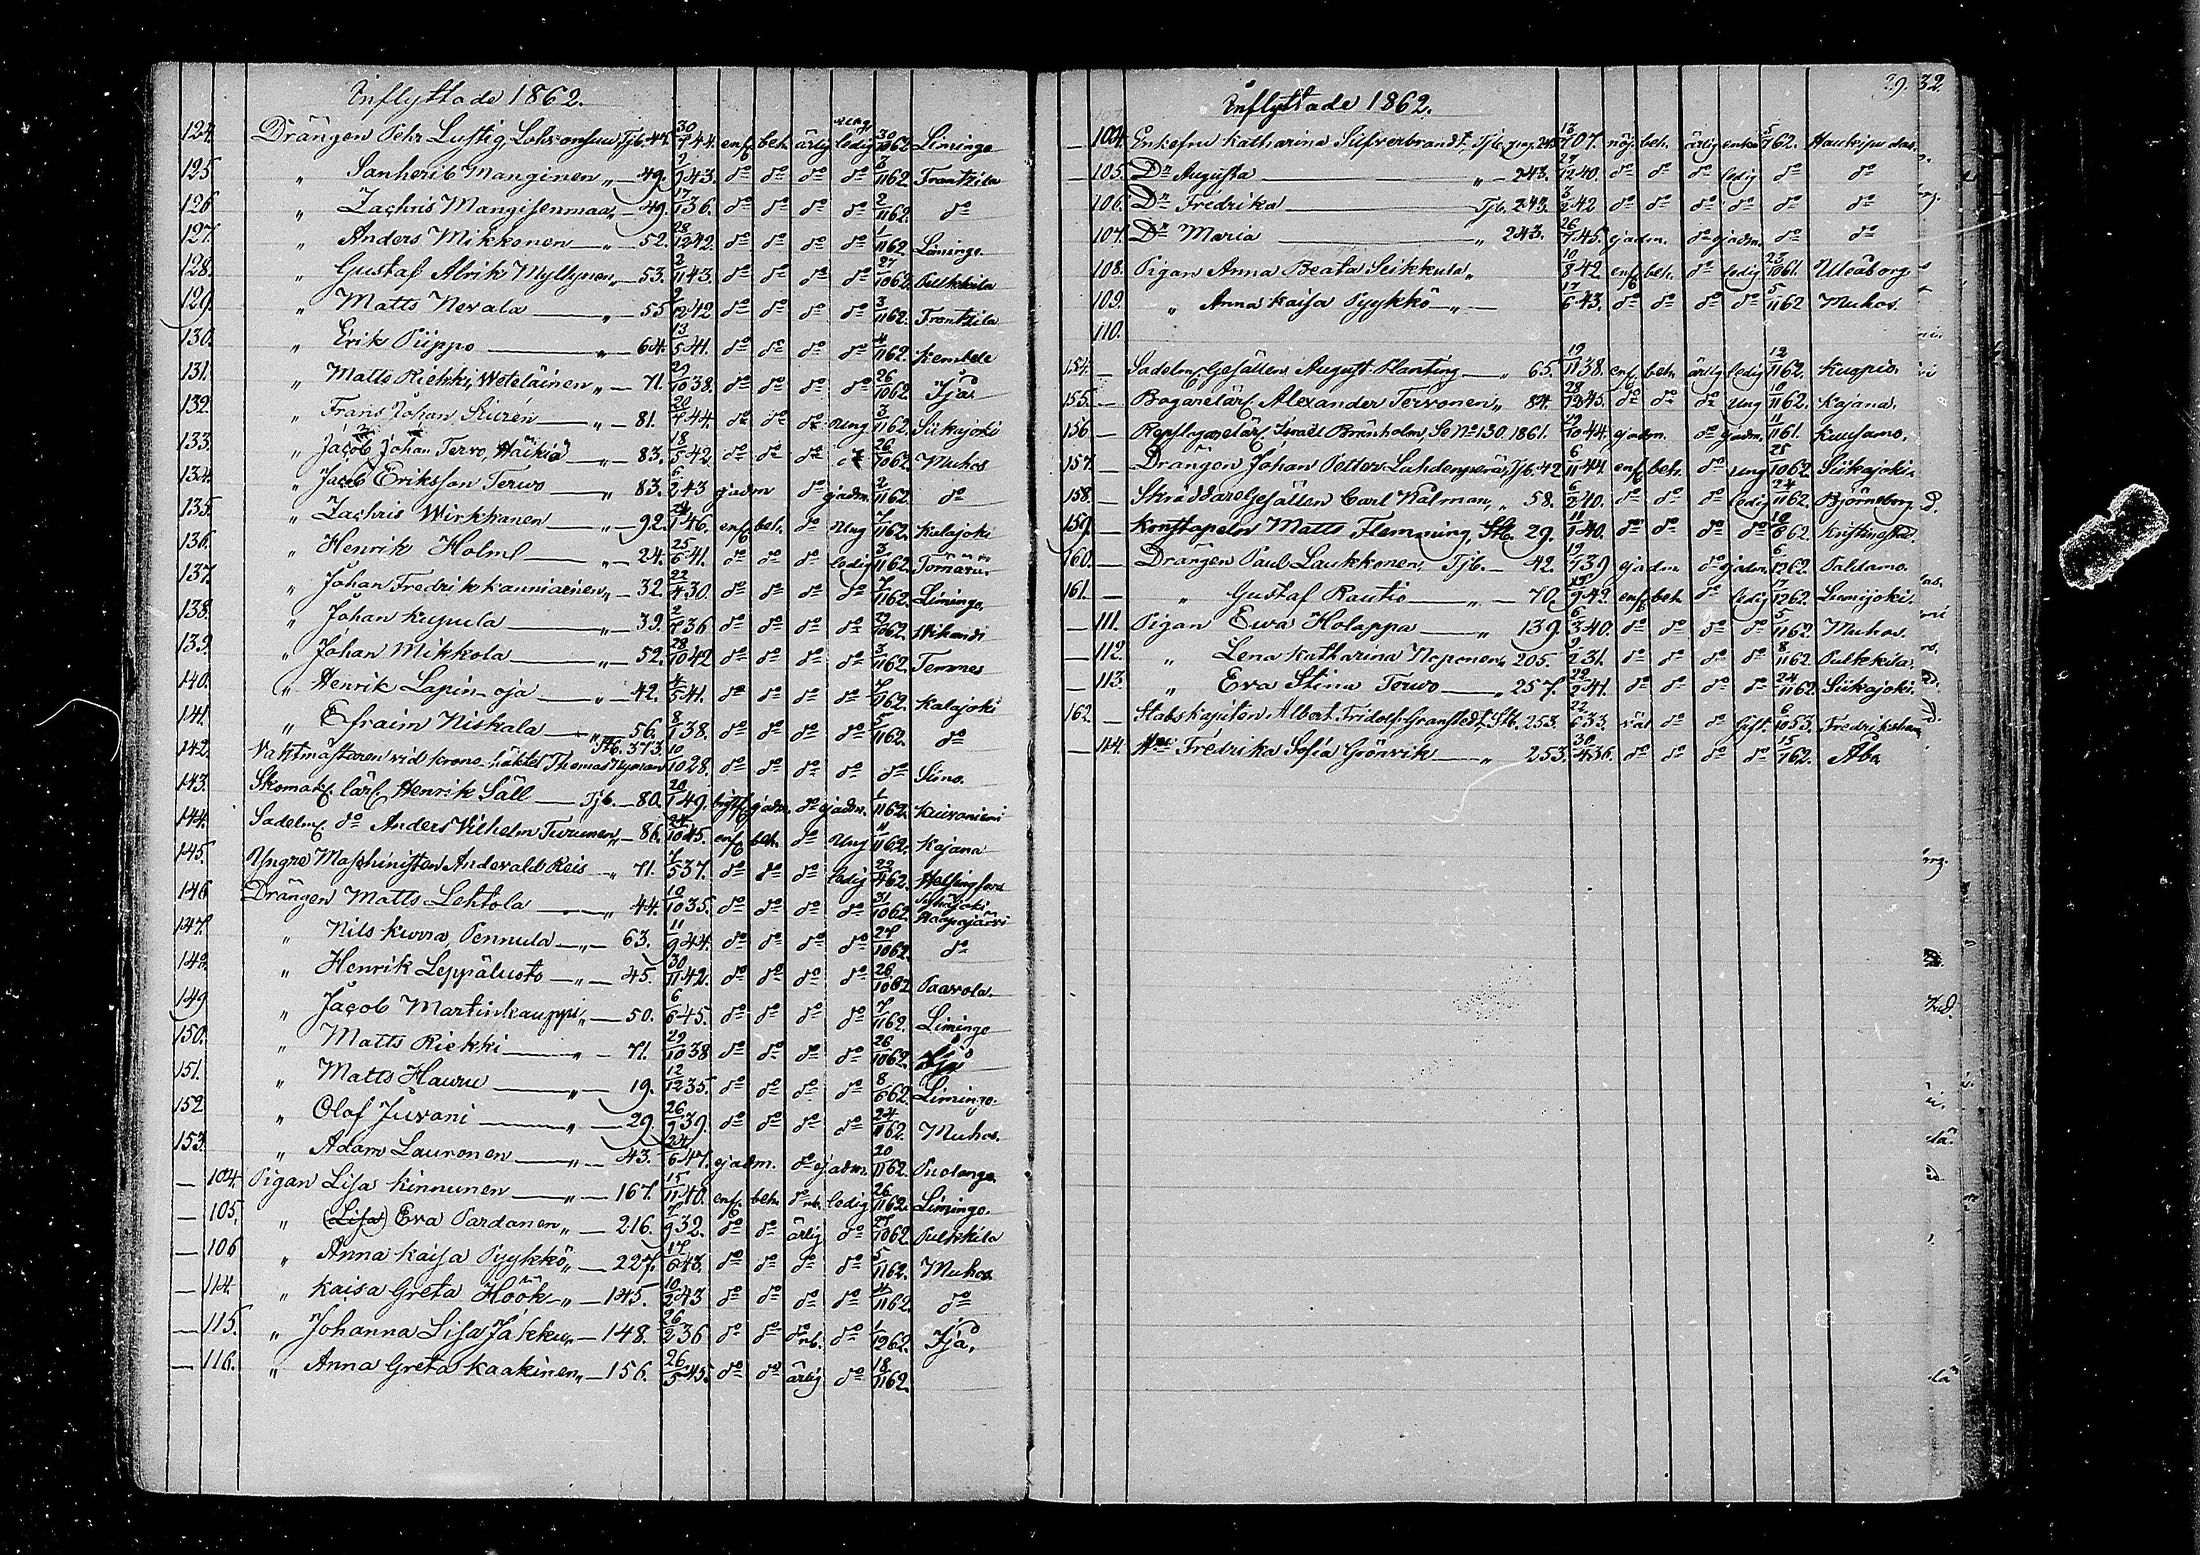 Inflyttade 1862.
124. Drängen Pehr Lustig, Tjb. 44. 30/4 44. enf. beh. ärlig ledig 30/10 62. Limingo
125. " Sanherib Manginen " 49. 2/9 43. do do do do 3/11 62. Frantzila
126. " Zachris Mangisenmaa " 49. 17/1 36. do do do do 2/11 62. do
127. " Anders Mikkonen " 52. 28/12 42. do do do do 1/11 62. Limingo
128. " Gustaf Alrik Myllynen " 53. 2/11 43. do do do do 27/10 62. Pulkkila
129. " Matts Nevala " 55 2/12 42 do do do do 3/11 62. Frantzila
130. " Erik Piippo " 64. 13/5 41. do do do do 4/11 62. Kembele
131. " Matts Riekki, Woteläinen " 71. 29/10 38. do do do do 26/10 62. Ijå
132. " Frans Johan Siuren " 81. 20/4 44. do do do Ung 3/11 62. Siikajoki
133. " Jacob Johan Tervo, Häikiö " 83. 18/5 42. do do do do 26/10 62. Muhos
134. " Jacob Eriksson Terwo " 83. 6/2 43 ej adm do ej adm. 2/11 62. do
135. " Zachris Wirkkanen " 92. 24/1 46. enf. beh. do Ung 7/11 62. Kalajoki
136. " Henrik Holm " 24. 25/6 41. do do do ledig 3/11 62. Torneå.
137. " Johan Fredrik Kanniainen " 32. 22/4 30. do do do do 7/11 62. Limingo.
138. " Johan Kupula " 39. 2/7 36 do do do do 29/10 62. Wihandi
139. " Johan Mikkola " 52. 28/10 42 do do do do 3/11 62. Temmes
140. " Henrik Lapin-oja " 42. 4/5 41. do do do do 7/11 62. Kalajoki
141. " Efraim Niskala " 56. 8/1 38. do do do do 5/11 62. do
142. Vaktmästaren vid krono-häktet Thomas Nyman Stb. 373. 10/10 28. do do do do do Simo.
143. Skomak. lärl. Henrik Säll Tjb. 80. 20/1 49. ej adm. do ej adm. 1/11 62. Kuivaniemi
144. Sadelm. do Anders Vilhelm Turunen " 86. 24/10 45. enf. beh. do Ung 11/11 62. Kajana
145. Yngre Maschinisten Andevald Reis " 71. 7/5 37. do do do ledig 22/4 62. Helsingfors
146 Drängen Matts Lehtola " 44. 10/10 35. do do do do 31/10 62. Haapajärvi
147. " Nils Kurra, Pennula " 63. 11/9 44. do do do do 27/10 62. do
148. " Henrik Leppäluoto " 45. 30/11 42. do do do do 26/10 62 Paavola.
149 " Jacob Martinkauppi " 50. 6/6 45. do do do do 7/11 62. Limingo
150. " Matts Riekki " 71. 29/10 38 do do do do 26/10 62. Ijå
151. " Matts Hauru " 19. 12/12 35. do do do do 8/6 62. Limingo.
152 " Olof Juvani " 29. 26/9 39. do do do do 24/11 62. Muhos.
153. " Adam Lauronen " 43. 24/6 47. ej adm. do ej adm. 20/11 62. Puolango
— 104. Pigan Lisa Kinnunen " 167. 15/11 40. enf. beh. do nb. ledig 26/11 62. Limingo.
— 105. " (Lisa) Eva Pardanen " 216. 7/9 32. do do ärlig do 27/10 62. Pulkkila
— 106 " Anna Kaisa Pyykkö " 227. 17/6 43. do do do do 5/11 62. Muhos
— 114. " Kaisa Greta Höök " 145. 10/2 43 do do do do 4/11 62. do
— 115. " Johanna Lisa Jakku " 148. 26/2 36 do do do nb. do 1/12 62. Ijå.
— 116. " Anna Greta Kaakinen " 156. 26/5 45. do do ärlig do 18/11 62.
29. 32.
Inflyttade 1862.
— 104. Enkefru Katharina Silfverbrandt, Tjb. 243. 13/7 07. nöj. beh. ärlig enka 5/7 62. Haukipudas.
— 105. Dr Augusta " 243. 27/12 40. do do do ledig do do
106. Dr Fredrika Tjb. 243. 3/2 42 do do do do do do
107. Dr Maria " 243. 26/7 45. ej adm. do ej adm. do do
108. Pigan Anna Beata Seikkula " 10/8 42. enf. beh. do ledig 23/10 61. Uleåborg
109. " Anna Kaisa Pyykkö " 17/6 43. do do do do 5/11 62 Muhos.
110.
154. — Sadelm. Gesällen August Planting " 65. 19/11 38. enf. beh. ärlig ledig 12/11 62. Kuopio.
155. — Bagarelärl. Alexander Tervonen " 84. 28/12 45. do do do Ung 10/11 62. Kajana.
156 — Repslagarelärl. Israel Brunholm, Se No 130. 1861. 29/10 44. ej adm. do ej adm. 11/11 61. Kuusamo.
157. — Drängen Johan Petter Lahdenperä, Tjb. 42 6/11 44 enf. beh. do Ung 25/10 62. Siikajoki.
158. — Skräddare Gesällen Carl Walman, " 58. 6/2 40. do do do ledig 24/11 62. Björneborg
159. — Konstapeln Matts Flemming, Stb. 29. 11/2 40. do do do do 10/8 62. Kristinestad.
160. — Drängen Paul Laukkonen Tjb. 42. 19/7 39 ej adm do ej adm. 6/12 62. Paldamo.
161. — " Gustaf Rautio " 70. 15/9 42. enf. beh. do ledig 7/12 62. Lumijoki.
— 111. Pigan Ewa Holappa " 139. 6/3 40. do do do do 5/11 62. Muhos.
— 112. " Lena Katharina Neponen " 205. 2/2 31. do do do do 8/11 62. Pulkkila.
— 113. " Eva Stina Torwo " 257. 22/2 41. do do do do 24/11 62. Siikajoki.
162. — Stabskapiten Albert Fridolf Granstedt, Stb. 253. 22/6 33. väl do do gift. 6/10 53. Fredrikshamn
— 114. Hru Fredrika Sofia Grönvik " 253. 30/4 36. do do do do 15/7 62. Åbo